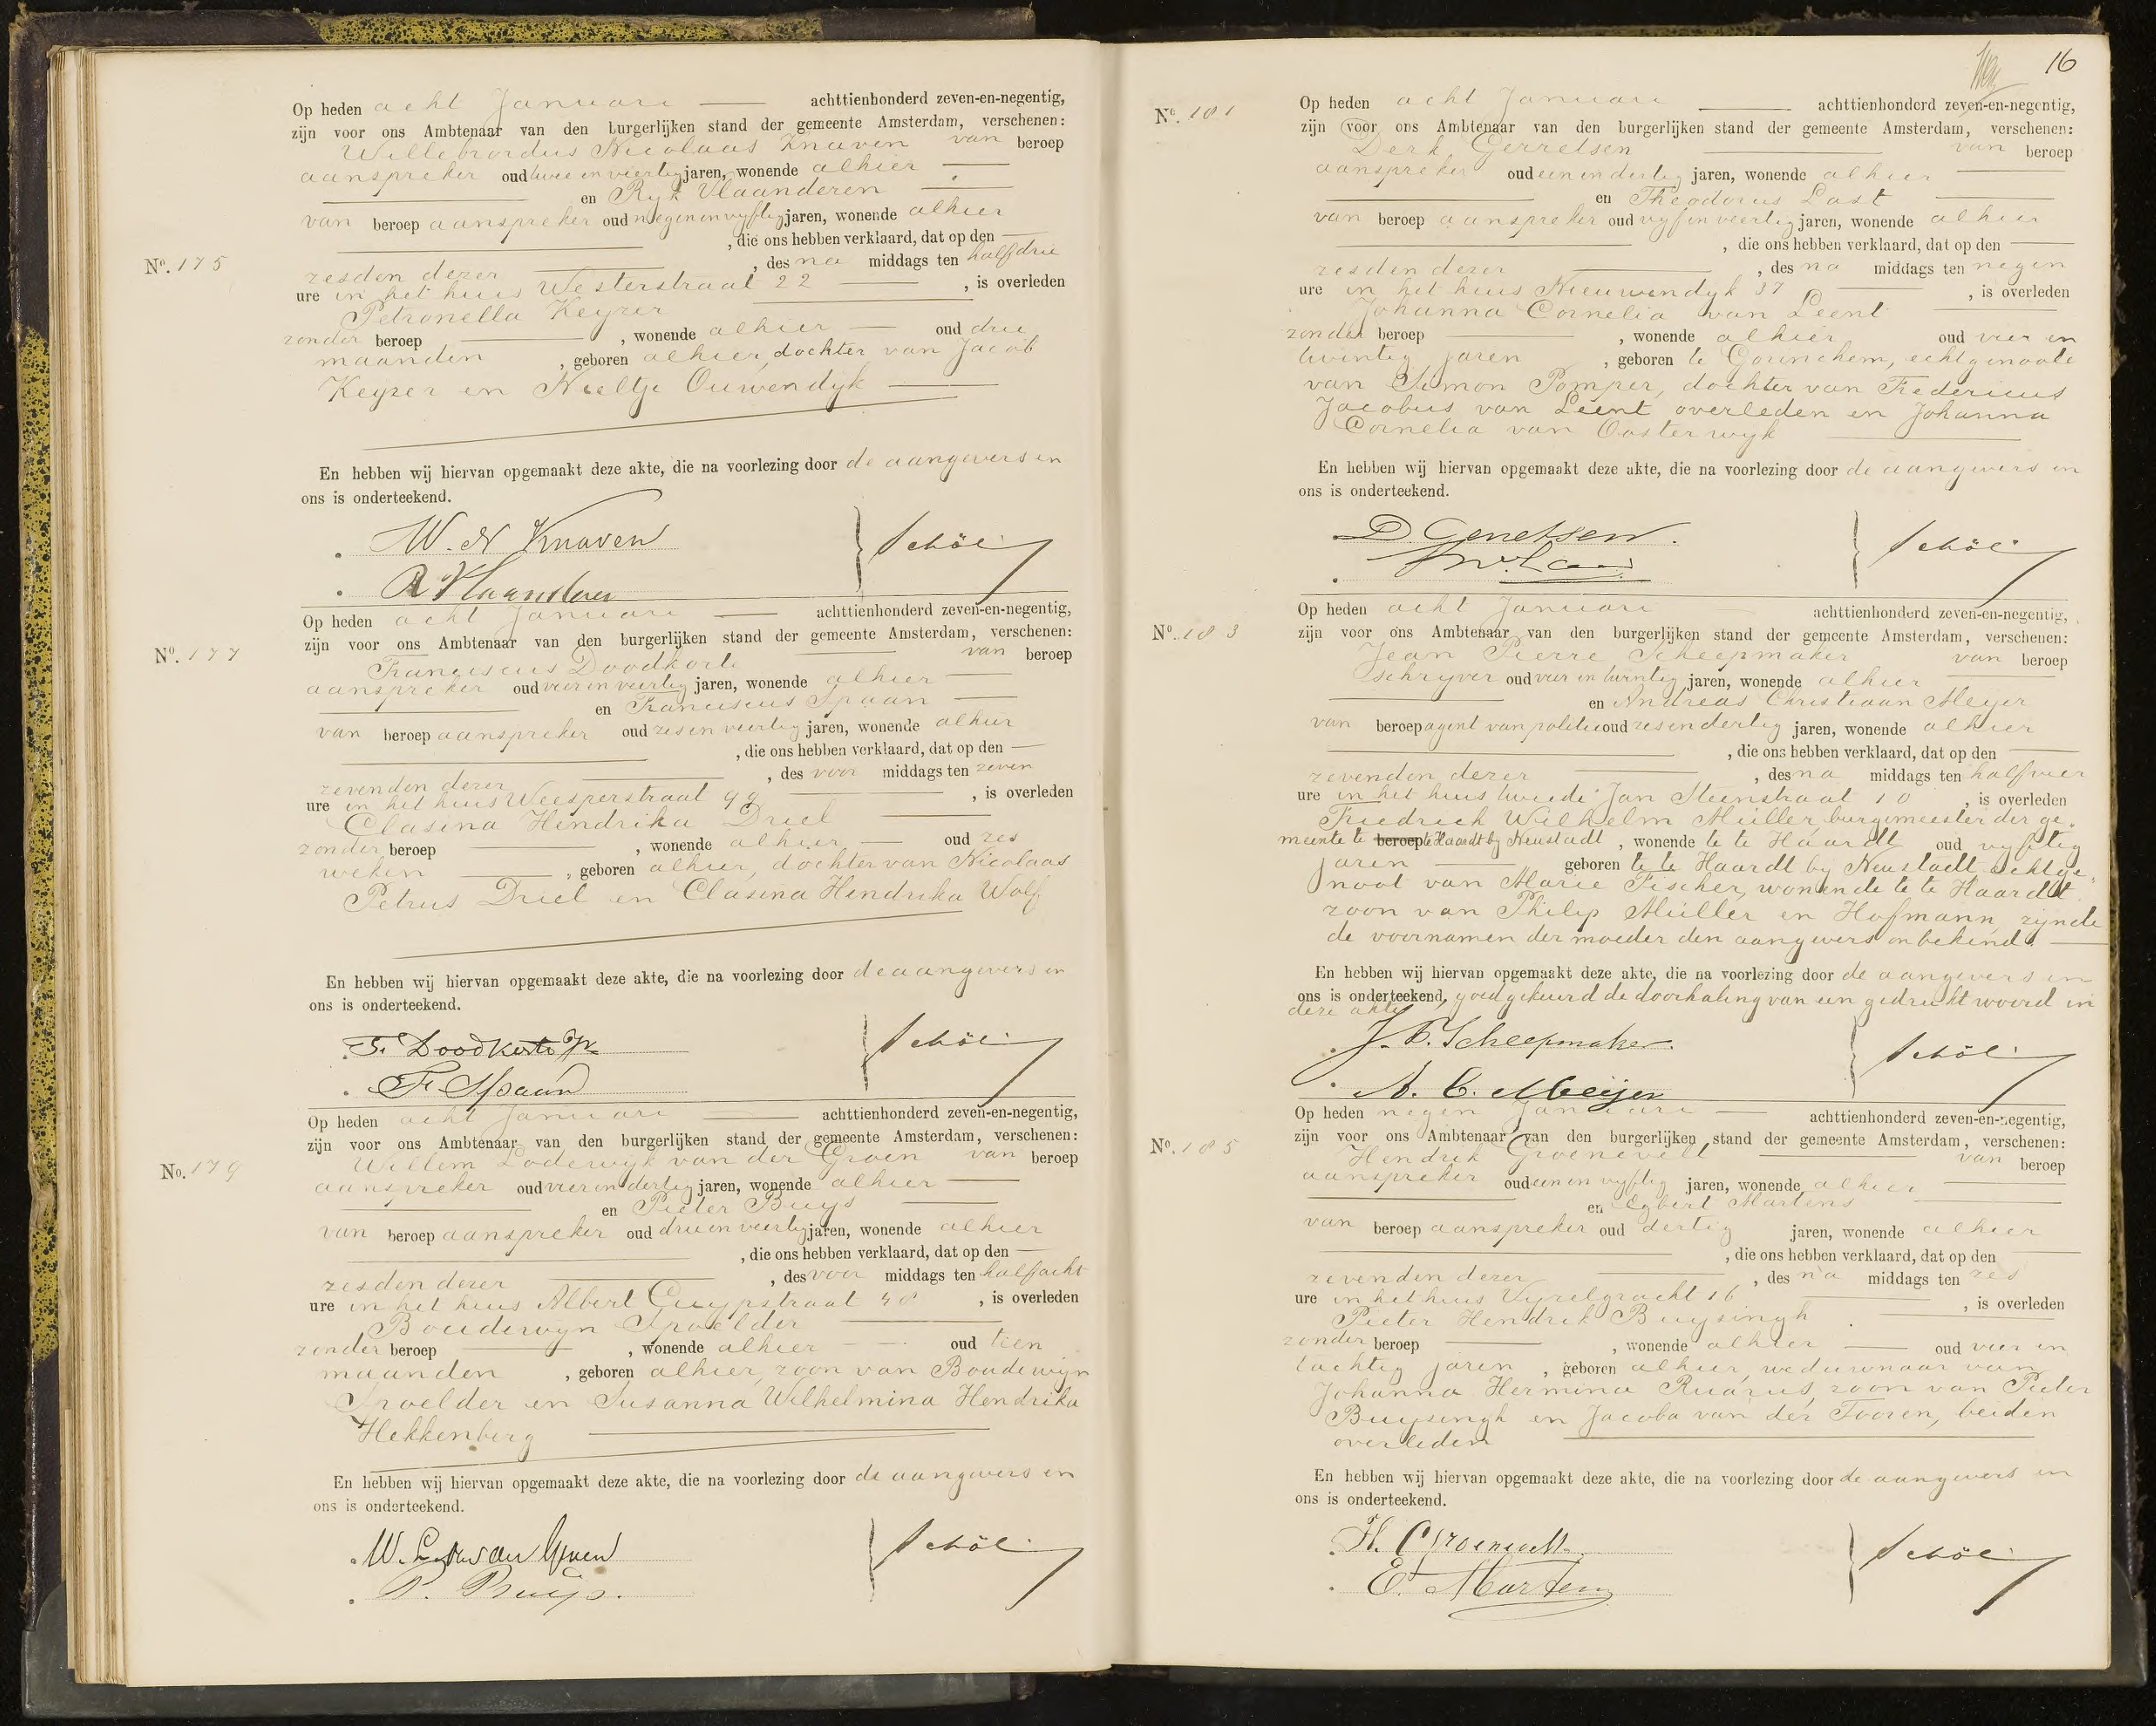 Op heden acht Januari achttienhonderd zeven-en-negentig,
zijn voor ons Ambtenaar van den burgerlijken stand der gemeente Amsterdam, verschenen:
Willebrordus Nicolaas Knaven van beroep
aanspreker oud twee en veertig jaren, wonende alhier
en Ryk Vlaanderen
van beroep aanspreker oud negen en vyftig jaren, wonende alhier
, die ons hebben verklaard, dat op den
No. 175
zesden dezer , des na middags ten half drie
ure in het huis Westerstraat 22 , is overleden
Petronella Keyzer
zonder beroep , wonende alhier oud drie
maanden , geboren alhier, dochter van Jacob
Keyzer en Neeltje Ouwendyk
En hebben wij hiervan opgemaakt deze akte, die na voorlezing door de aangevers en
ons is onderteekend.
W. N Knaven
R Vlaanderen
Op heden acht Januari achttienhonderd zeven-en-negentig,
zijn voor ons Ambtenaar van den burgerlijken stand der gemeente Amsterdam, verschenen:
No. 177
Franciscus Doodkorte van beroep
aanspreker oud vier en veertig jaren, wonende alhier
en Franciscus Spaan
van beroep aanspreker oud zes en veertig jaren, wonende alhier
, die ons hebben verklaard, dat op den
zevenden dezer , des voor middags ten zeven
ure in het huis Weesperstraat 99 , is overleden
Clasina Hendrika Driel
zonder beroep , wonende alhier oud zes
weken , geboren alhier, dochter van Nicolaas
Petrus Driel en Clasina Hendrika Wolf
En hebben wij hiervan opgemaakt deze akte, die na voorlezing door de aangevers en
ons is onderteekend.
F. Doodkorte Jr
F. Spaan
Op heden acht Januari achttienhonderd zeven-en-negentig,
zijn voor ons Ambtenaar van den burgerlijken stand der gemeente Amsterdam, verschenen:
No. 179
Willem Lodewyk van der Groen van beroep
aanspreker oud vier en dertig jaren, wonende alhier
en Pieter Buys
van beroep aanspreker oud drie en veertig jaren, wonende alhier
, die ons hebben verklaard, dat op den
zesden dezer , des voor middags ten half acht
ure in het huis Albert Cuypstraat 48 , is overleden
Boudewyn Spoelder
zonder beroep , wonende alhier oud tien
maanden , geboren alhier, zoon van Boudewyn
Spoelder en Susanna Wilhelmina Hendrika
Hekkenberg
En hebben wij hiervan opgemaakt deze akte, die na voorlezing door de aangevers en
ons is onderteekend.
W. L. van der Groen
P. Buijs.
16
Op heden acht Januari achttienhonderd zeven-en-negentig,
No. 181
zijn voor ons Ambtenaar van den burgerlijken stand der gemeente Amsterdam, verschenen:
Derk Gerretsen van beroep
aanspreker oud een en dertig jaren, wonende alhier
en Theodorus Last
van beroep aanspreker oud vyf en veertig jaren, wonende alhier
, die ons hebben verklaard, dat op den
zesden dezer , des na middags ten negen
ure in het huis Nieuwendyk 37 , is overleden
Johanna Cornelia van Leent
zonder beroep , wonende alhier oud vier en
twintig jaren , geboren te Gorinchem, echtgenoote
van Simon Pomper, dochter van Fredericus
Jacobus van Leent overleden en Johanna
Cornelia van Oosterwyk
En hebben wij hiervan opgemaakt deze akte, die na voorlezing door de aangevers en
ons is onderteekend.
D. Gerretsen.
Op heden acht Januari achttienhonderd zeven-en-negentig,
No. 183
zijn voor ons Ambtenaar van den burgerlijken stand der gemeente Amsterdam, verschenen:
Jean Pierre Scheepmaker van beroep
schryver oud vier en twintig jaren, wonende alhier
en Andreas Christiaan Meyer
van beroep agent van politie oud zes en dertig jaren, wonende alhier
, die ons hebben verklaard, dat op den
zevenden dezer , des na middags ten half vier
ure in het huis tweede Jan Steenstraat 10 , is overleden
Friedrich Wilhelm Müller burgemeester der ge-
meente te beroep te Haardt by Neustadt , wonende te te Haardt oud vyftig
jaren geboren te te Haardt by Neustadt echtge-
noot van Marie Fischer, wonende te te Haardt
zoon van Philip Müller en Hofmann, zynde
de voornamen der moeder den aangevers onbekend.
En hebben wij hiervan opgemaakt deze akte, die na voorlezing door de aangevers en
ons is onderteekend, goedgekeurd de doorhaling van een gedrukt woord in
deze akte
J. P. Scheepmaker.
A. C. Meijer
Op heden negen Januari achttienhonderd zeven-en-negentig,
No. 185
zijn voor ons Ambtenaar van den burgerlijken stand der gemeente Amsterdam, verschenen:
Hendrik Groenevelt van beroep
aanspreker oud een en vyftig jaren, wonende alhier
en Egbert Martens
van beroep aanspreker oud dertig jaren, wonende alhier
, die ons hebben verklaard, dat op den
zevenden dezer , des na middags ten zes
ure in het huis Vyzelgracht 16 , is overleden
Pieter Hendrik Buysingh
zonder beroep , wonende alhier oud vier en
tachtig jaren , geboren alhier, weduwnaar van
Johanna Hermina Ruarus, zoon van Pieter
Buysingh en Jacoba van der Tooren, beiden
overleden
En hebben wij hiervan opgemaakt deze akte, die na voorlezing door de aangevers en
ons is onderteekend.
H. Groenevelt.
E. Martens